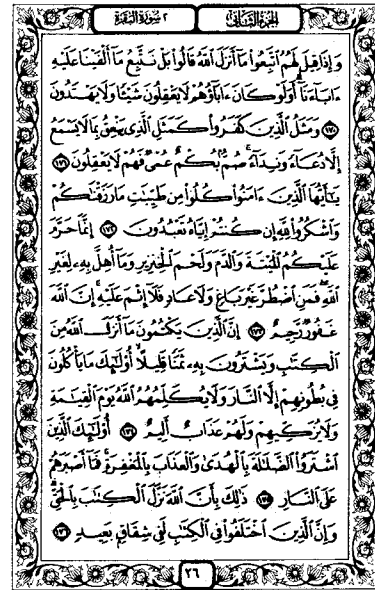 الجزء الثاني
٢ سورة البقرة
وَإِذَا قِيلَ لَهُمُ اتَّبِعُوا مَا أَنزَلَ اللَّهُ قَالُوا بَلْ نَتَّبِعُ مَا أَلْفَيْنَا عَلَيْهِ
ءَابَاءَنَا أَوَلَوْ كَانَ ءَابَاؤُهُمْ لَا يَعْقِلُونَ شَيْئًا وَلَا يَهْتَدُونَ
﴿١٧٠﴾ وَمَثَلُ الَّذِينَ كَفَرُوا كَمَثَلِ الَّذِي يَنْعِقُ بِمَا لَا يَسْمَعُ
إِلَّا دُعَاءً وَنِدَاءً صُمٌّ بُكْمٌ عُمْيٌ فَهُمْ لَا يَعْقِلُونَ ﴿١٧١﴾
يَأَيُّهَا الَّذِينَ ءَامَنُوا كُلُوا مِن طَيِّبَتِ مَا رَزَقْنَاكُمْ
وَاشْكُرُوا لِلَّهِ إِن كُنتُمْ إِيَّاهُ تَعْبُدُونَ ﴿١٧٢﴾ إِنَّمَا حَرَّمَ
عَلَيْكُمُ الْمَيْتَةَ وَالدَّمَ وَلَحْمَ الْخِنزِيرِ وَمَا أُهِلَّ بِهِ لِغَيْرِ
اللَّهِ فَمَنِ اضْطُرَّ غَيْرَ بَاغٍ وَلَا عَادٍ فَلَا إِثْمَ عَلَيْهِ إِنَّ اللَّهَ
غَفُورٌ رَّحِيمٌ ﴿١٧٣﴾ إِنَّ الَّذِينَ يَكْتُمُونَ مَا أَنزَلَ اللَّهُ مِنَ
الْكِتَبِ وَيَشْتَرُونَ بِهِ ثَمَنًا قَلِيلًا أُوْلَئِكَ مَا يَأْكُلُونَ
فِي بُطُونِهِمْ إِلَّا النَّارَ وَلَا يُكَلِّمُهُمُ اللَّهُ يَوْمَ الْقِيَمَةِ
وَلَا يُزَكِّيهِمْ وَلَهُمْ عَذَابٌ أَلِيمٌ ﴿١٧٤﴾ أُوْلَئِكَ الَّذِينَ
اشْتَرَوُا الضَّلَلَةَ بِالْهُدَى وَالْعَذَابَ بِالْمَغْفِرَةِ فَمَا أَصْبَرَهُمْ
عَلَى النَّارِ ﴿١٧٥﴾ ذَلِكَ بِأَنَّ اللَّهَ نَزَّلَ الْكِتَبَ بِالْحَقِّ
وَإِنَّ الَّذِينَ اخْتَلَفُوا فِي الْكِتَبِ لَفِي شِقَاقٍ بَعِيدٍ ﴿١٧٦﴾
٢٦